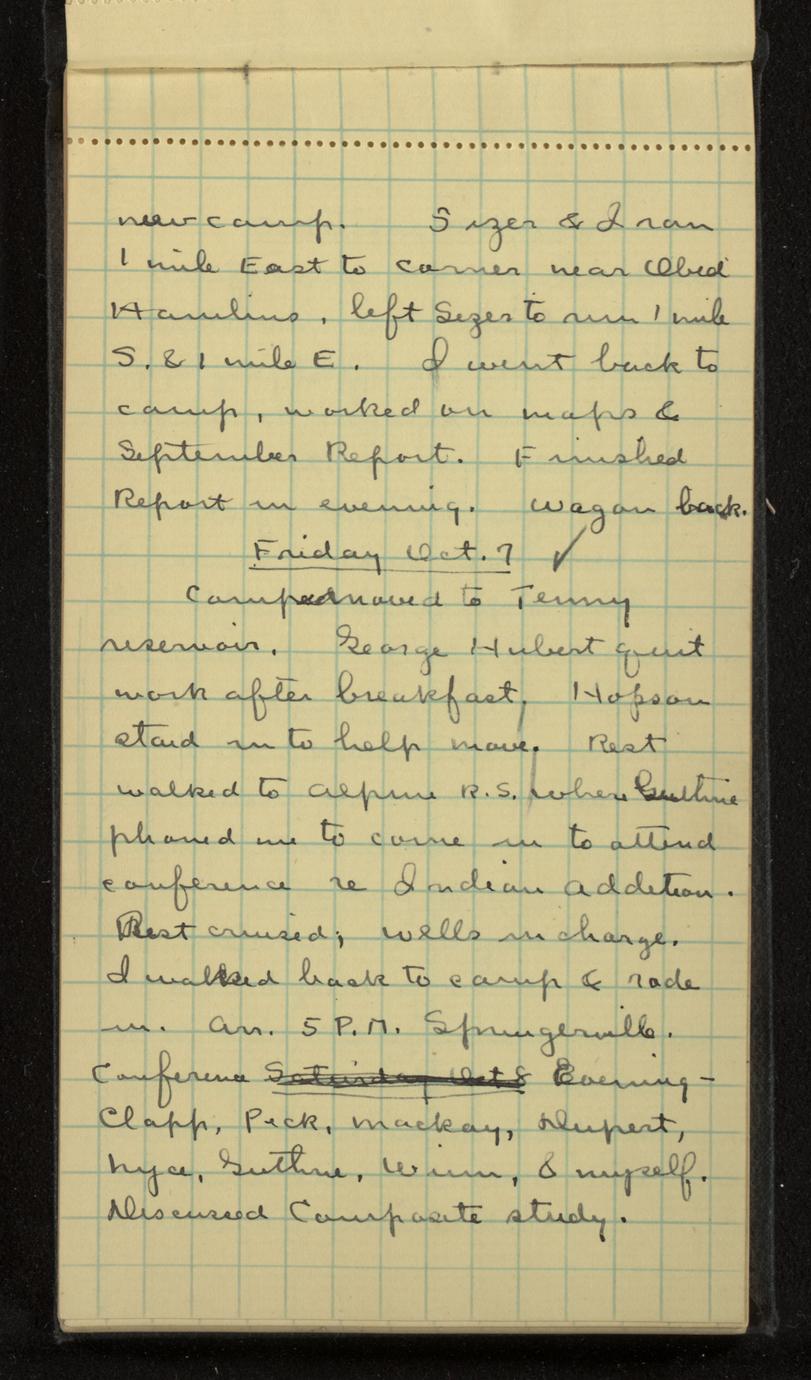 new camp. Sizer & I ran
1 mile East to corner near Obed
Hamlins, left Sizer to run 1 mile
S. & 1 mile E. I went back to
camp, worked on maps &
September Report. Finished
Report in evening. Wagon back.
Friday Oct. 7 ✓
Camp moved to Tenny
reservoir. George Hubert quit
work after breakfast. Hopson
staid in to help move. Rest
walked to Alpine R.S. where Guthrie
phoned me to come in to attend
conference re Indian addition.
Rest cruised; Wells in charge.
I walked back to camp & rode
in. Arr. 5 P.M. Springerville.
Conference Saturday Oct 8 Evening -
Clapp, Peck, Mackay, Rupert,
Nyce, Guthrie, Winn, & myself.
Discussed Composite study.